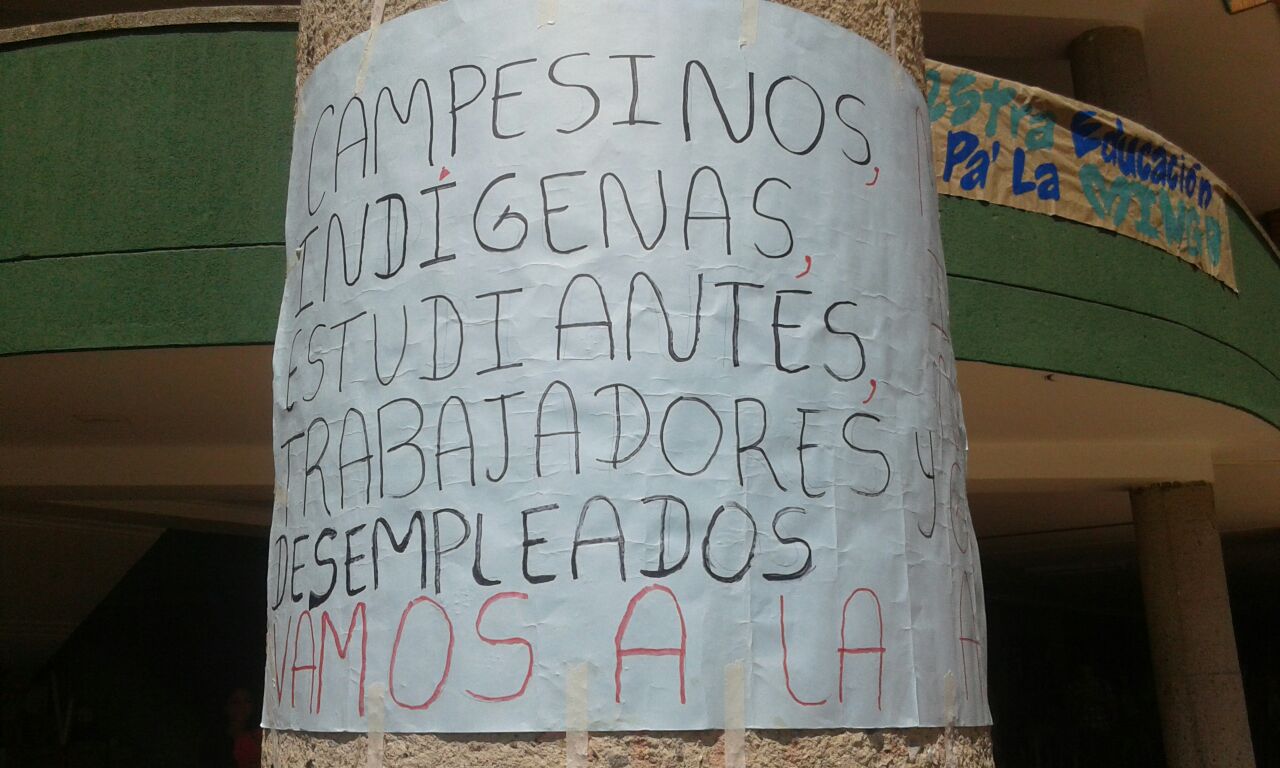 CAMPESINOS,
INDÍGENAS,
ESTUDIANTES,
TRABAJADORES y
DESEMPLEADOS
VAMOS A LA
Pa' La Educación
MINGA